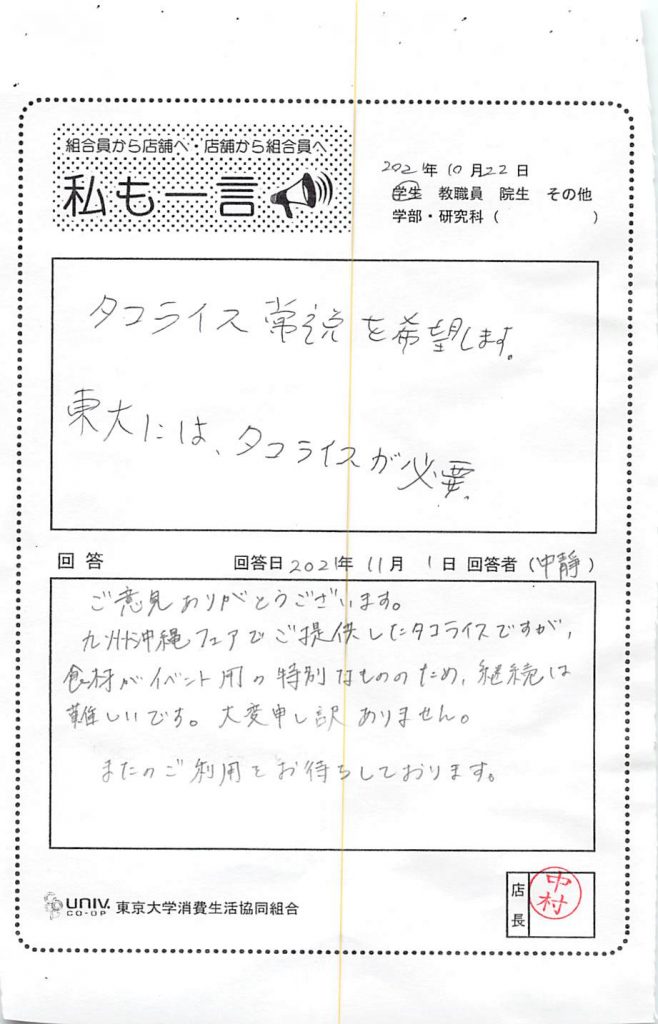 組合員から店舗へ 店舗から組合員へ
私も一言
2021年10月22日
学生 教職員 院生 その他
学部・研究科( )
タコライス常設を希望します。
東大には、タコライスが必要。
回答 回答日2021年11月1日 回答者(中静)
ご意見ありがとうございます。
九州沖縄フェアでご提供したタコライスですが、
食材がイベント用の特別なもののため、継続は
難しいです。大変申し訳ありません。
またのご利用をお待ちしております。
UNIV. CO-OP 東京大学消費生活協同組合
店長
中村